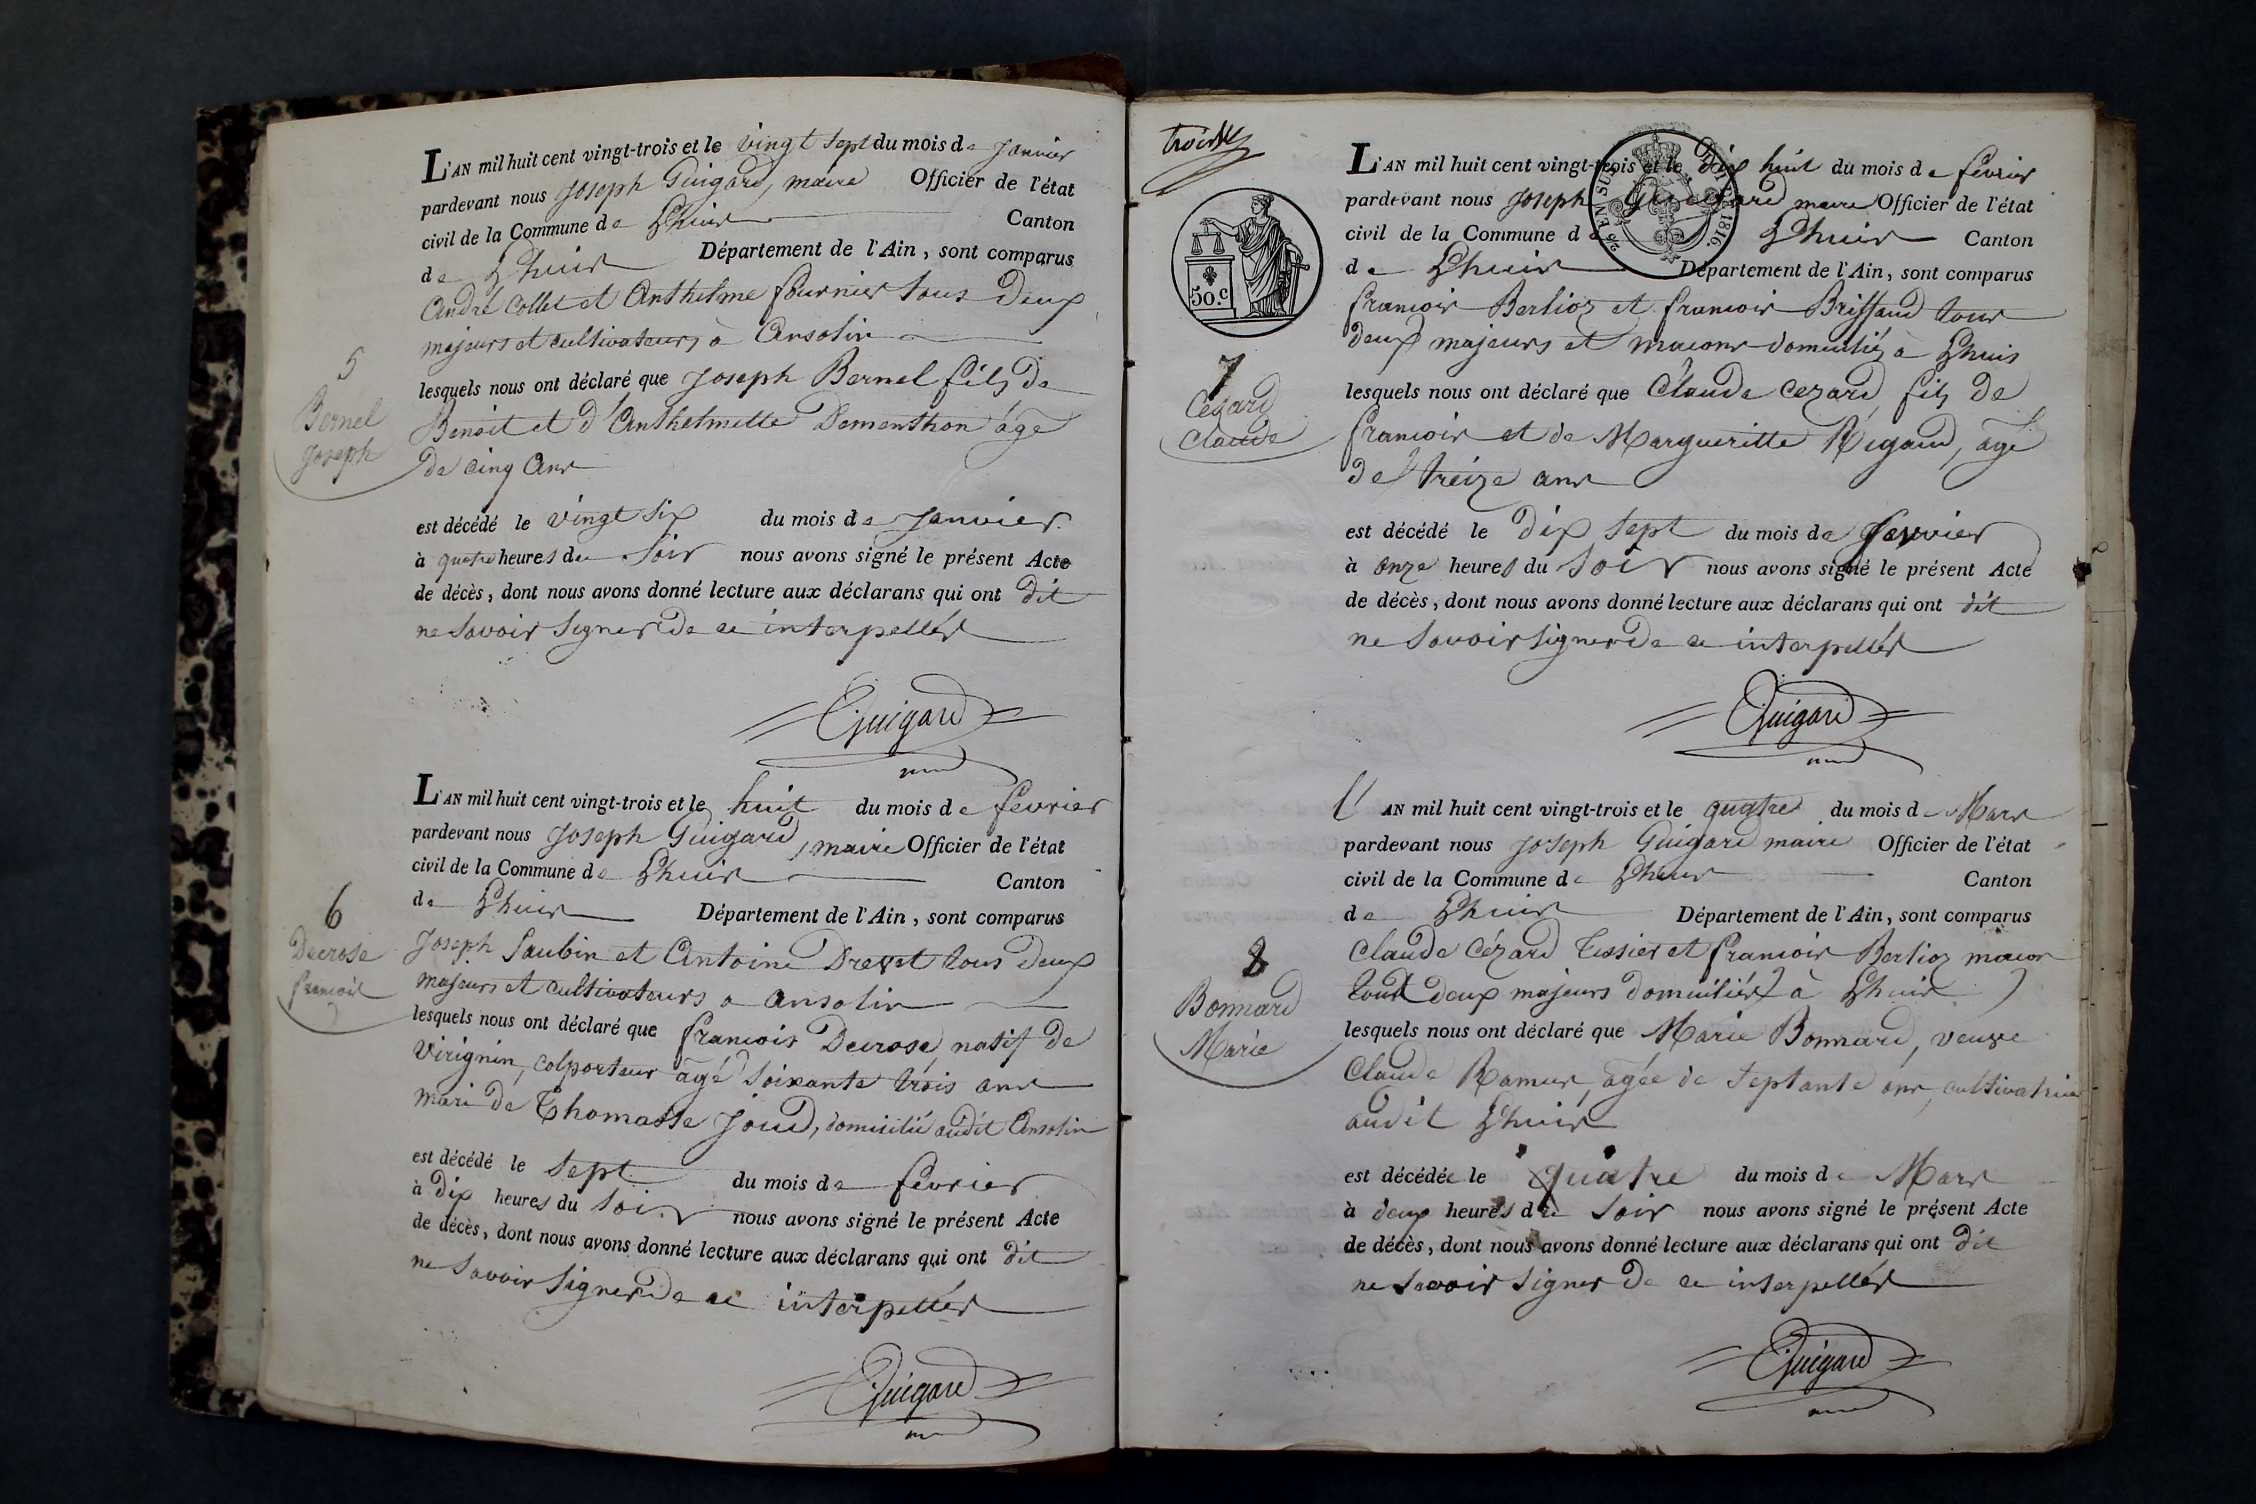 L'AN mil huit cent vingt-trois et le vingt sept du mois de janvier
pardevant nous Joseph Guigard, maire Officier de l'état
civil de la Commune de Lhuis Canton
de Lhuis Département de l'Ain, sont comparus
André Collet et Anthelme fournier tous deux
majeurs et cultivateurs à Ansolin
5
Bernel
Joseph
lesquels nous ont déclaré que Joseph Bernel fils de
Benoit et d'Anthelmette Dementhon âgé
de cinq ans
est décédé le vingt six du mois de janvier.
à quatre heures du soir nous avons signé le présent Acte
de décès, dont nous avons donné lecture aux déclarans qui ont dit
ne savoir signer de ce interpellés
Guigard
L'AN mil huit cent vingt-trois et le huit du mois de fevrier
pardevant nous Joseph Guigard, maire Officier de l'état
civil de la Commune de Lhuis Canton
de Lhuis Département de l'Ain, sont comparus
6
Decrose
francois
Joseph Saubin et Antoine Drevet tous deux
majeurs et cultivateurs a ansolin
lesquels nous ont déclaré que francois Decrose, natif de
Virignin, colporteur âgé soixante trois ans
mari de Thomasse Joud, domicilié audit Ansolin
est décédé le sept du mois de fevrier
à dix heures du soir nous avons signé le présent Acte
de décès, dont nous avons donné lecture aux déclarans qui ont dit
ne savoir signer de ce interpellés
Guigard
trois
50.c
L'AN mil huit cent vingt-trois et le dix huit du mois de fevrier
pardevant nous Joseph Guigard maire Officier de l'état
civil de la Commune de Lhuis Canton
de Lhuis Département de l'Ain, sont comparus
1816
francois Berlioz et francois Briffaud tous
deux majeurs et macons domiciliés a Lhuis
7
Cezard
Claude
lesquels nous ont déclaré que Claude Cezard, fils de
francois et de Margueritte Rigaud, âgé
de treize ans
est décédé le dix sept du mois de fevrier
à onze heures du soir nous avons signé le présent Acte
de décès, dont nous avons donné lecture aux déclarans qui ont dit
ne savoir signer de ce interpellés
Guigard
L'AN mil huit cent vingt-trois et le quatre du mois de Mars
pardevant nous Joseph Guigard maire Officier de l'état
civil de la Commune de Lhuis Canton
de Lhuis Département de l'Ain, sont comparus
8
Bonnard
Marie
Claude Cézard Tissier et francois Berlioz macon
tous deux majeurs domiciliés à Lhuis
lesquels nous ont déclaré que Marie Bonnard, veuve
Claude Ramus, âgée de septante ans, cultivatrice
audit Lhuis
est décédée le quatre du mois de Mars
à deux heures du soir nous avons signé le présent Acte
de décès, dont nous avons donné lecture aux déclarans qui ont dit
ne savoir signer de ce interpellés
Guigard